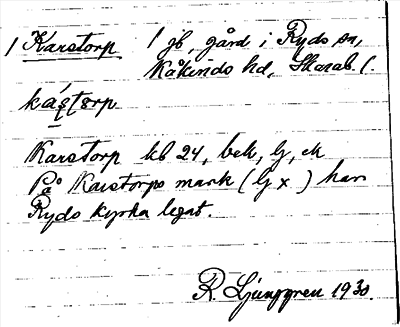 1 Karstorp 1 jb, gård i Ryds sn,
Kåkinds hd, Skarab. l.
ká̱ʂʈorp
Karstorp kb 24, bek, lj, ek
På Karstorps mark (lj x) har
Ryds kyrka legat.
R. Ljunggren 1930.